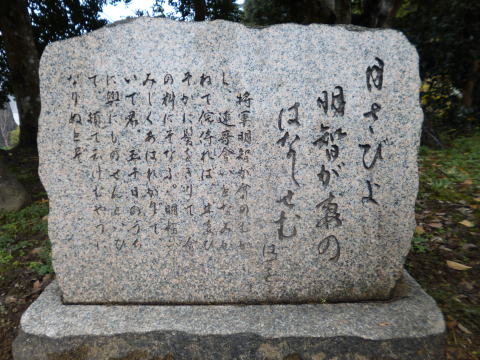 月さびよ
明智が妻の
はなしせむ
はせを
将軍明智が貧のむか
し、連歌会いとなみか
ねて侘侍れば、其妻ひ
そかに髪をきりて、会
の料にそなふ。明智い
みじくあはれがりて、
いで君、五十日のうち
に輿にものせんといひ
て、頓て云けむやうに
なりぬとぞ。